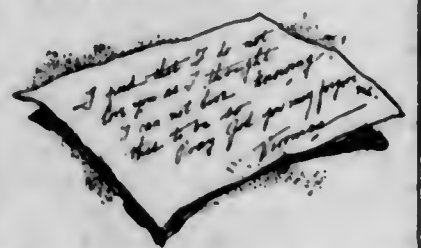 I find that I do not
love you as I thought
I can not live knowing
this to be so
Pray God you may forgive me.